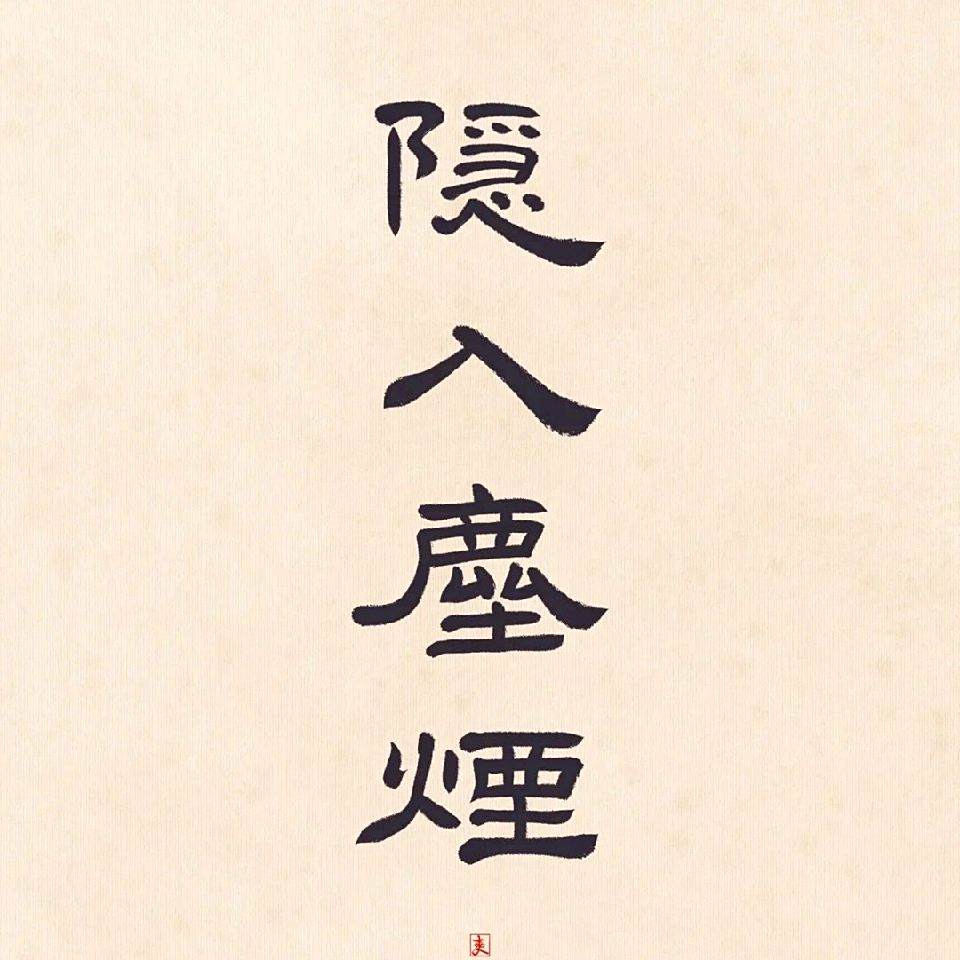 隱入塵煙